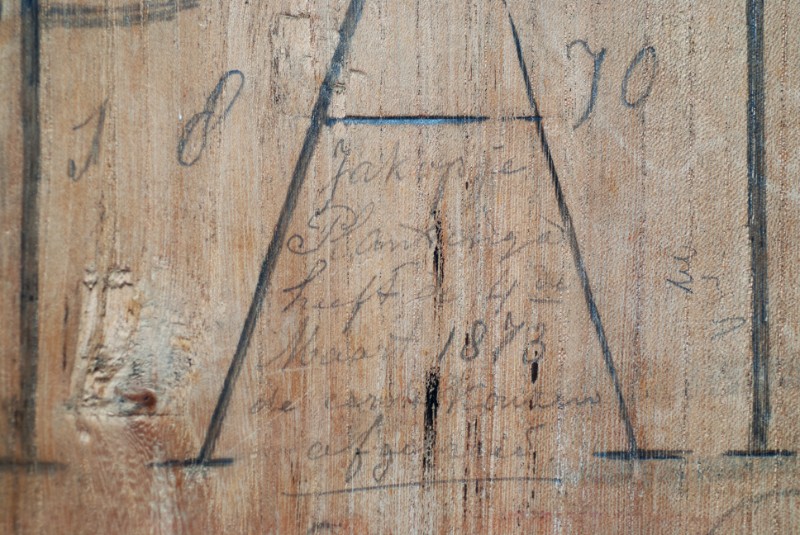 1870
A
Jakopje
Plantinga
heeft de 4de
Maart 1873
de eerste Kousen
afgebreid.